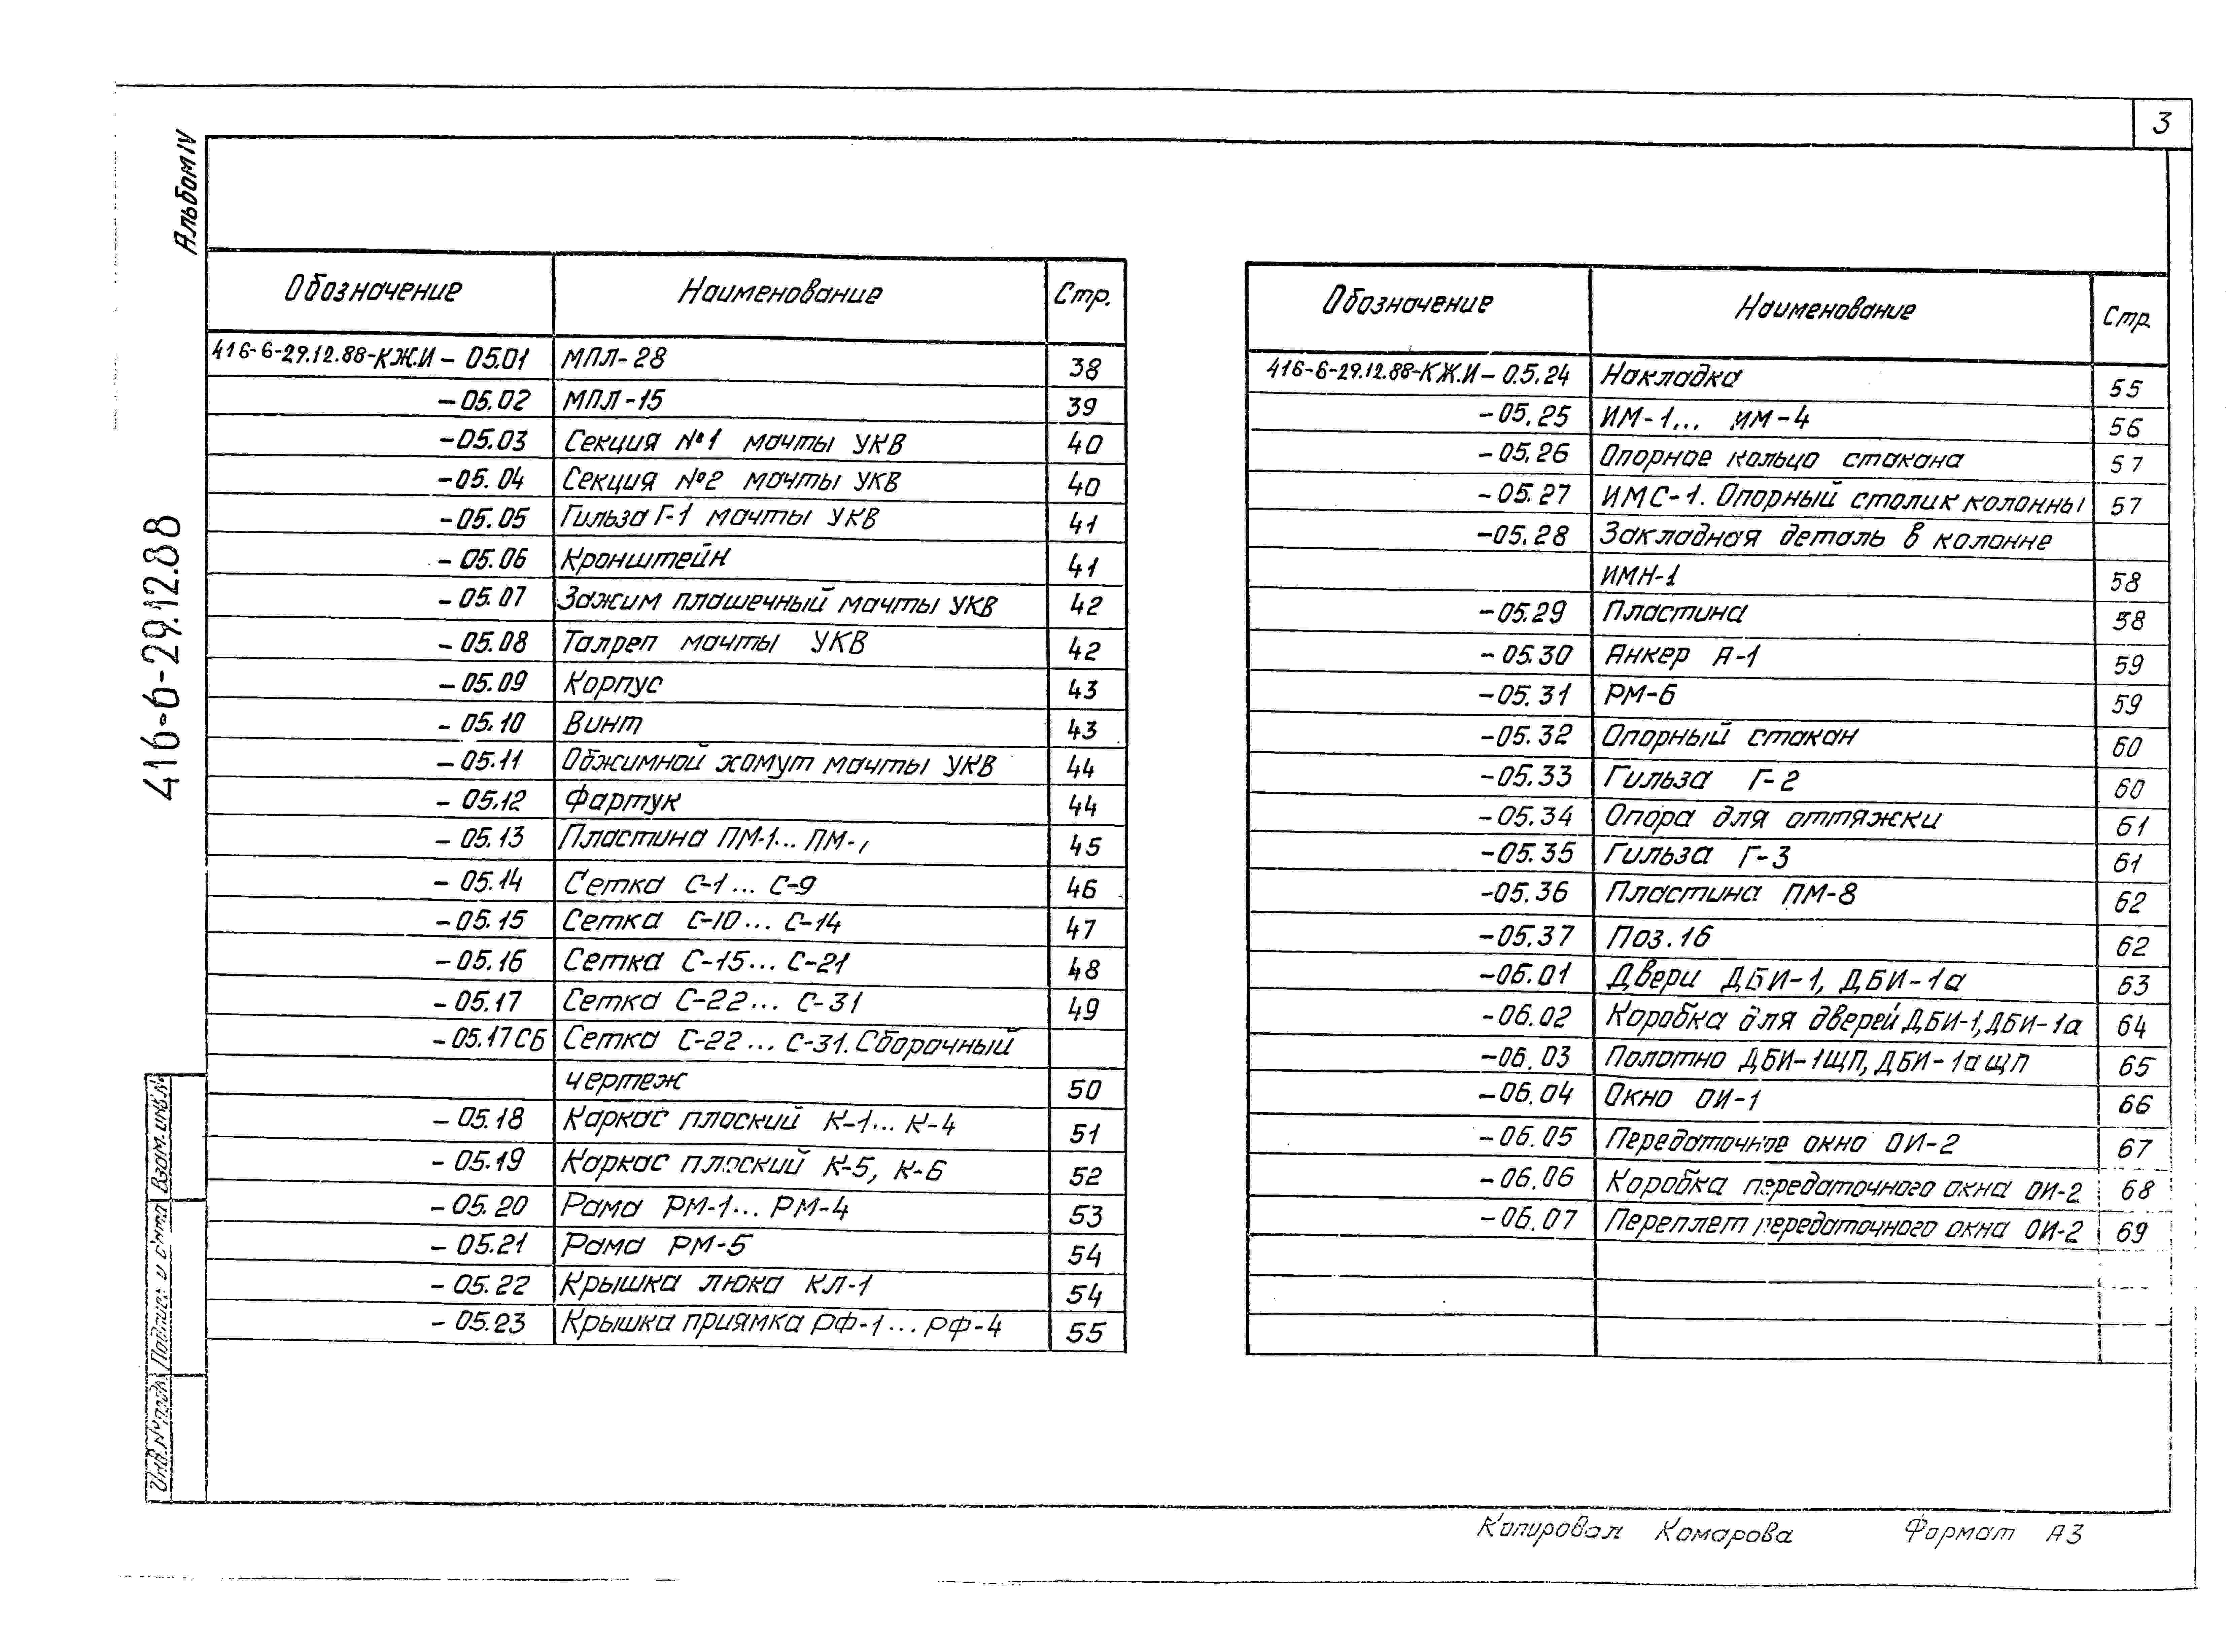 3
Альбом IV
416-6-29.12.88
Обозначение Наименование Стр.
416-6-29.12.88-КЖ.И - 05.01 МПЛ-28 38
-05.02 МПЛ-15 39
-05.03 Секция №1 мачты УКВ 40
-05.04 Секция №2 мачты УКВ 40
-05.05 Гильза Г-1 мачты УКВ 41
-05.06 Кронштейн 41
-05.07 Зажим плашечный мачты УКВ 42
-05.08 Талреп мачты УКВ 42
-05.09 Корпус 43
-05.10 Винт 43
-05.11 Обжимной хомут мачты УКВ 44
-05.12 Фартук 44
-05.13 Пластина ПМ-1... 45
-05.14 Сетка С-1... С-9 46
-05.15 Сетка С-10... С-14 47
-05.16 Сетка С-15... С-21 48
-05.17 Сетка С-22... С-31 49
-05.17СБ Сетка С-22... С-31. Сборочный
чертеж 50
-05.18 Каркас плоский К-1... К-4 51
-05.19 Каркас плоский К-5, К-6 52
-05.20 Рама РМ-1... РМ-4 53
-05.21 Рама РМ-5 54
-05.22 Крышка люка КЛ-1 54
-05.23 Крышка приямка РФ-1... РФ-4 55
Обозначение Наименование Стр.
416-6-29.12.88-КЖ.И - 0.5.24 Накладка 55
-05.25 ИМ-1... ИМ-4 56
-05.26 Опорное кольцо стакана 57
-05.27 ИМС-1. Опорный столик колонны 57
-05.28 Закладная деталь в колонне
ИМН-1 58
-05.29 Пластина 58
-05.30 Анкер А-1 59
-05.31 РМ-6 59
-05.32 Опорный стакан 60
-05.33 Гильза Г-2 60
-05.34 Опора для оттяжки 61
-05.35 Гильза Г-3 61
-05.36 Пластина ПМ-8 62
-05.37 Поз.16 62
-06.01 Двери ДБИ-1, ДБИ-1а 63
-06.02 Коробка для дверей ДБИ-1, ДБИ-1а 64
-06.03 Полотно ДБИ-1ЩП, ДБИ-1а щп 65
-06.04 Окно ОИ-1 66
-06.05 Передаточное окно ОИ-2 67
-06.06 Коробка передаточного окна ОИ-2 68
-06.07 Переплет передаточного окна ОИ-2 69
Взам. инв.№
Подпись и дата
Инв.№ подл.
Копировал Комарова Формат А3